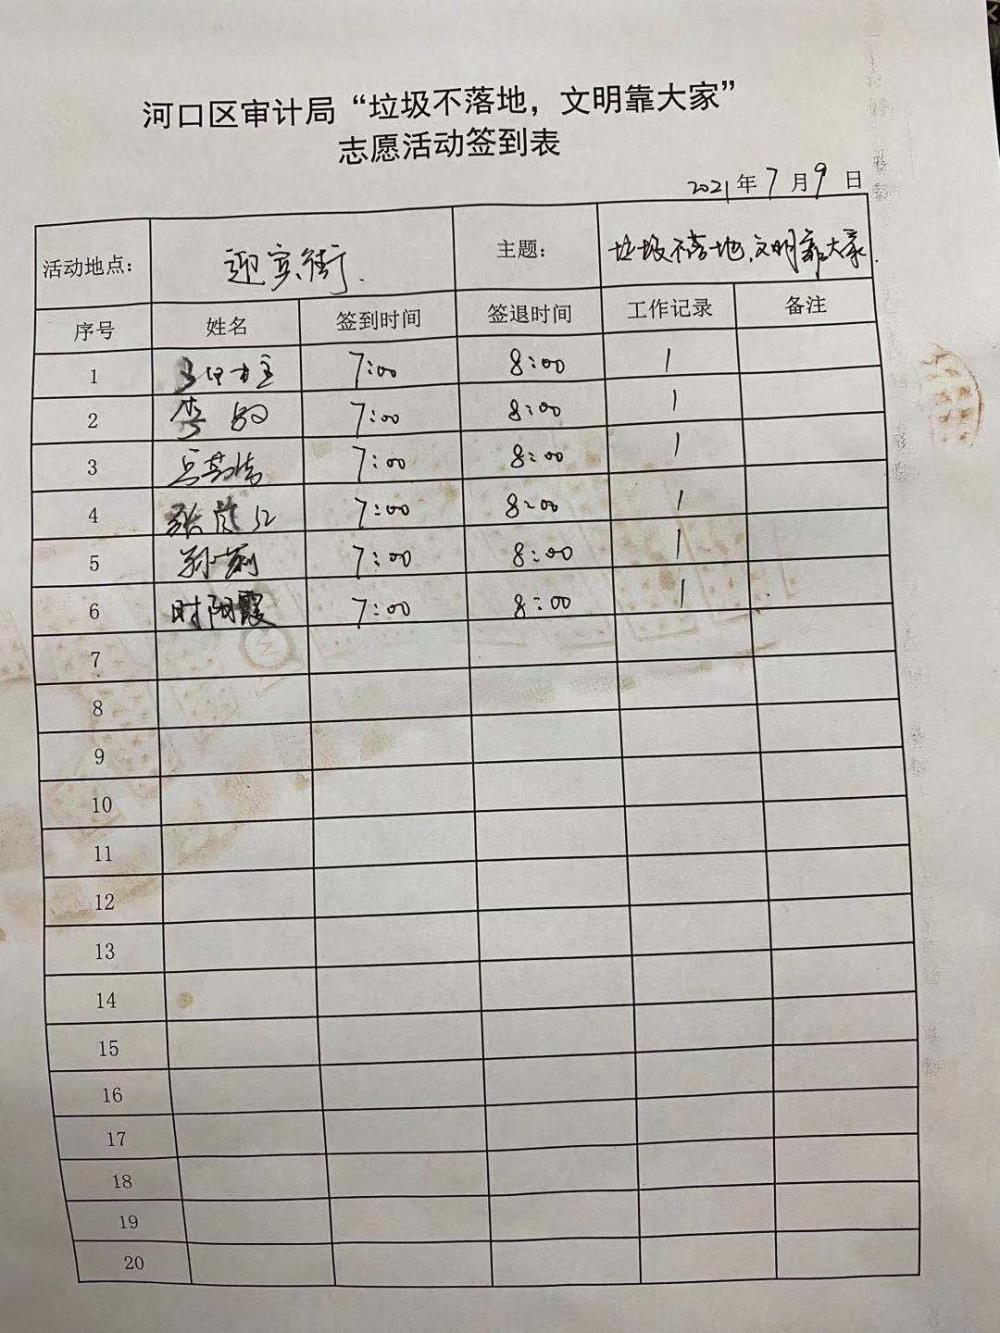 河口区审计局“垃圾不落地，文明靠大家”
志愿活动签到表
2021年7月9日
活动地点： 迎宾街. 主题： 垃圾不落地，文明靠大家.
序号 姓名 签到时间 签退时间 工作记录 备注
1 7:00 8:00 1
2 李 7:00 8:00 1
3 7:00 8:00 1
4 张 7:00 8:00 1
5 孙 7:00 8:00 1
6 时阳霞 7:00 8:00 1
7
8
9
10
11
12
13
14
15
16
17
18
19
20